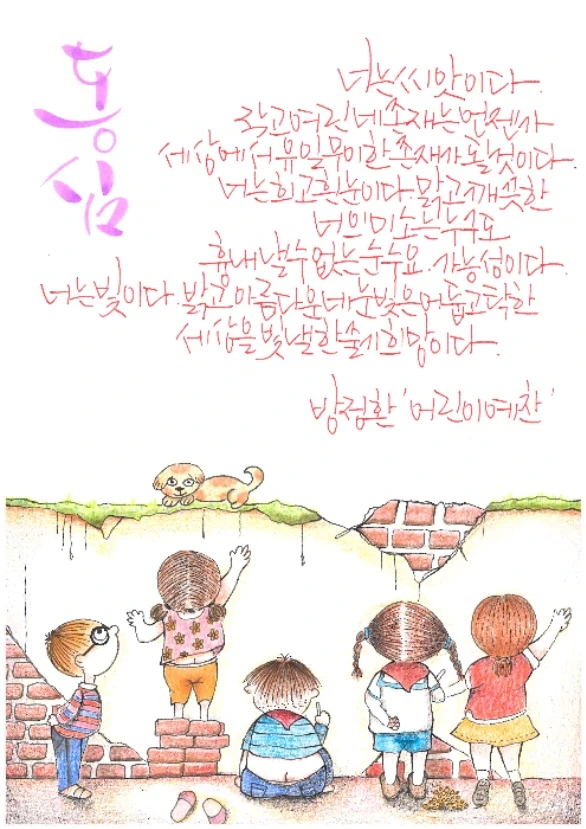 동심
너는 씨앗이다.
작고 여린 네 존재는 언젠가
세상에서 유일무이한 존재가 될 것이다.
너는 희고 흰 눈이다. 맑고 깨끗한
너의 미소는 누구도
흉내낼 수 없는 순수요. 가능성이다.
너는 빛이다. 밝고 아름다운 네 눈빛은 어둡고 탁한
세상을 빛낼 한줄기 희망이다.
방정환 '어린이예찬'